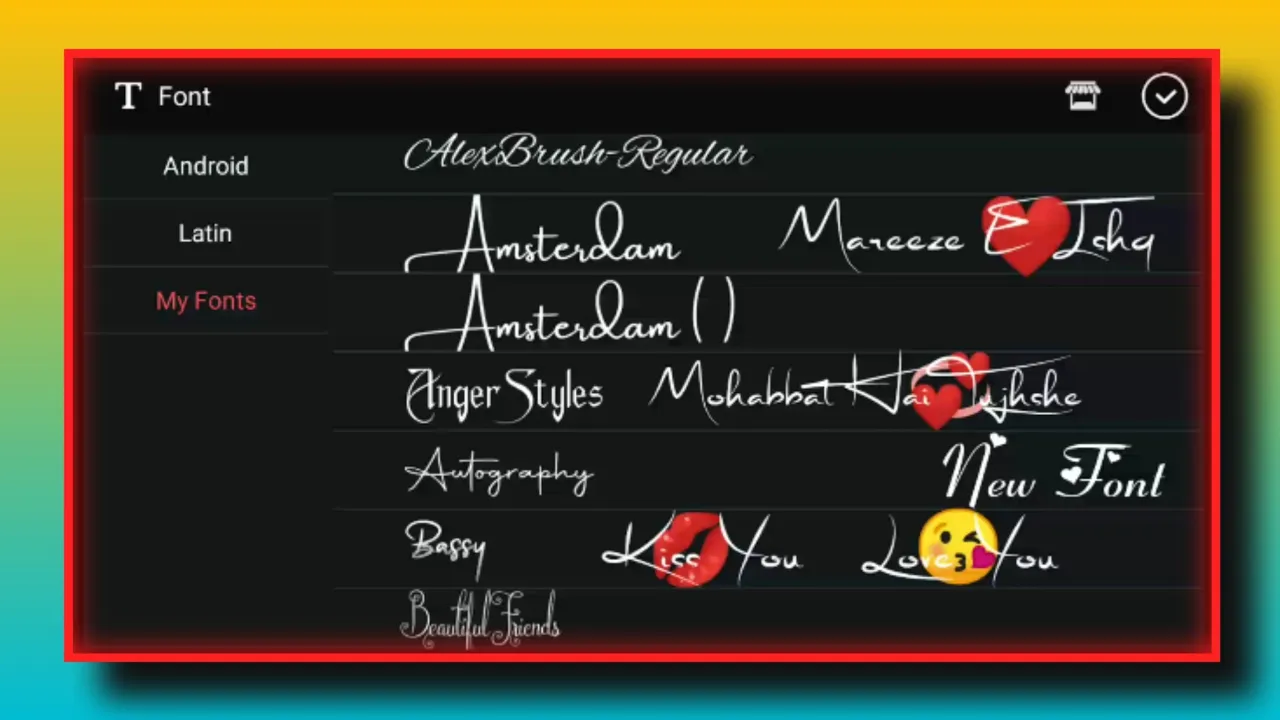 T Font
Android
Latin
My Fonts
AlexBrush-Regular
Amsterdam
Mareeze E Ishq
Amsterdam ( )
Anger Styles
Mohabbat Hai Tujhshe
Autography
New Font
Bassy
Kiss You
Love You
Beautiful Friends